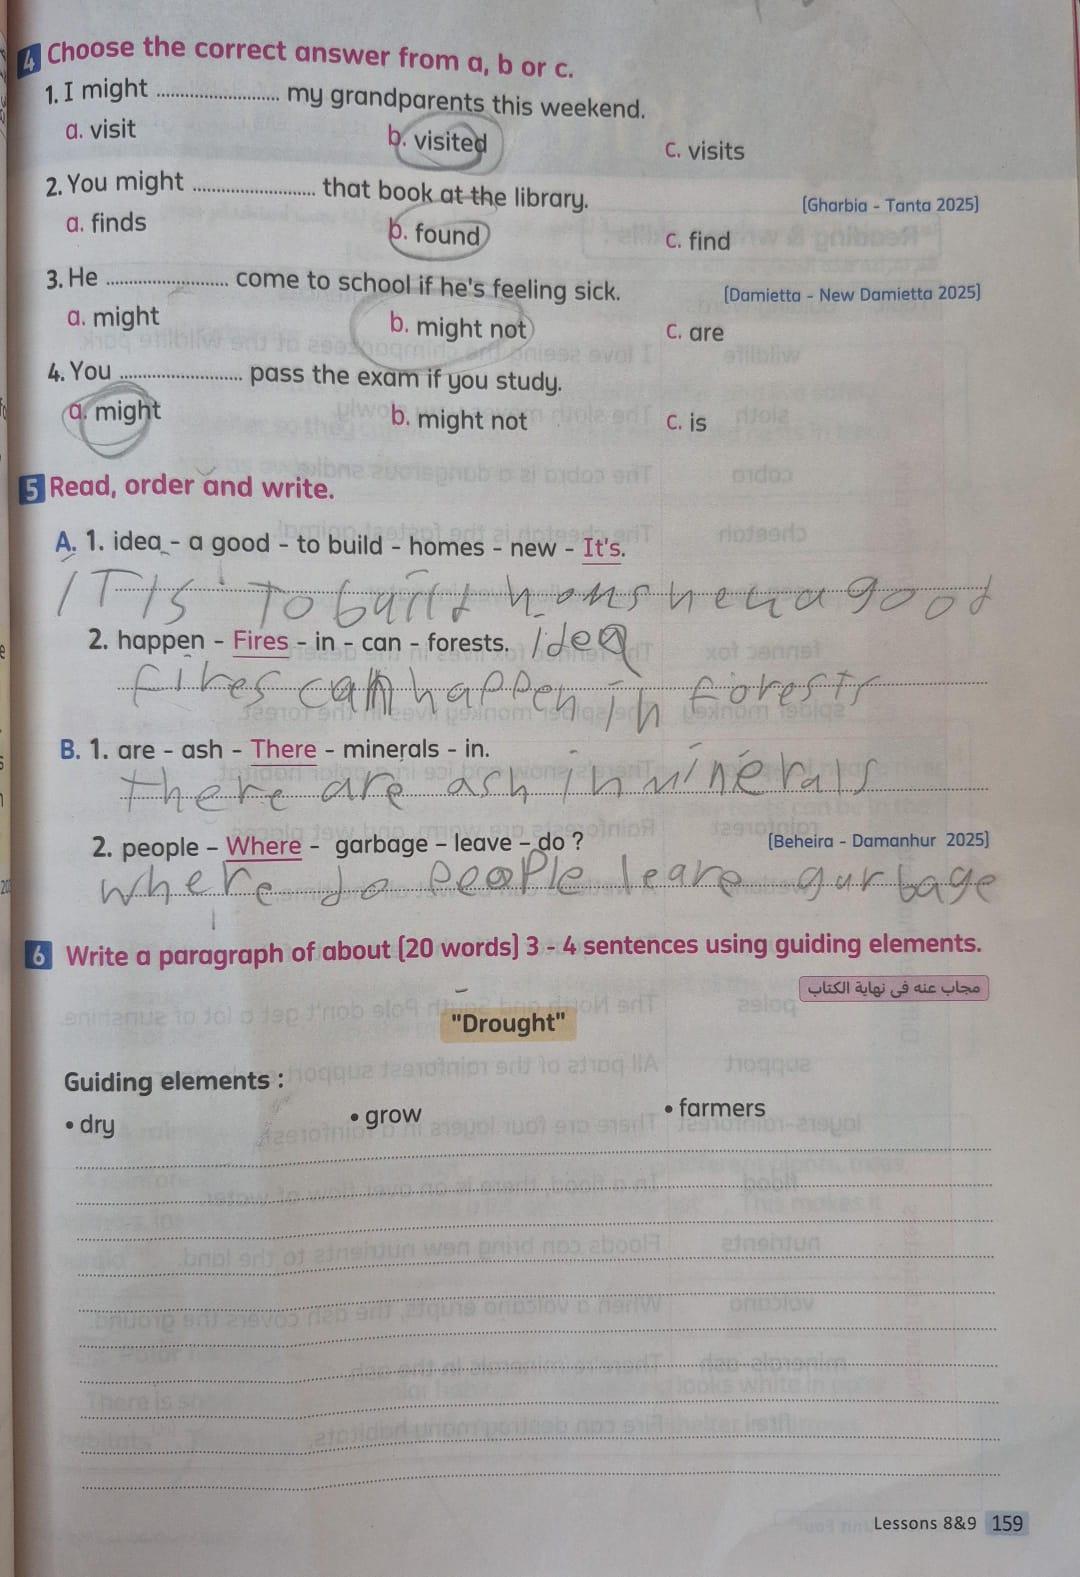 4 Choose the correct answer from a, b or c.
1. I might ........................ my grandparents this weekend.
a. visit b. visited c. visits
2. You might ........................ that book at the library. (Gharbia - Tanta 2025)
a. finds b. found c. find
3. He ........................ come to school if he's feeling sick. (Damietta - New Damietta 2025)
a. might b. might not c. are
4. You ........................ pass the exam if you study.
a. might b. might not c. is
5 Read, order and write.
A. 1. idea - a good - to build - homes - new - It's.
ITIs To build homs new a good
idea
2. happen - Fires - in - can - forests.
fires can happen in forests
B. 1. are - ash - There - minerals - in.
there are ash in minerals
2. people - Where - garbage - leave - do ? (Beheira - Damanhur 2025)
where do people leare garbage
6 Write a paragraph of about (20 words) 3 - 4 sentences using guiding elements.
مجاب عنه فى نهاية الكتاب
"Drought"
Guiding elements :
• dry • grow • farmers
Lessons 8&9 159